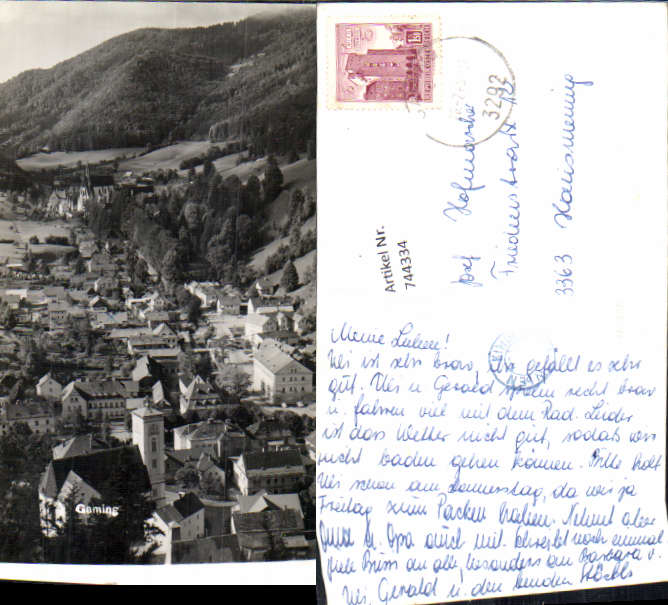 Gaming
3292
Artikel Nr.
744334
Josef Hofmarcher
3363 Hausmening
Meine Lieben!
ist sehr brav, gefällt es sehr
gut. u. Gerald spielen recht brav
u. fahren viel mit dem Rad. Leider
ist das Wetter nicht gut, sodaß wir
nicht baden gehen können. Bitte holt
schon am Donnerstag, da wir ja
Freitag zum Packen haben. Nehmt aber
Oma u. Opa auch mit. noch einmal
viele Bussi an alle, besonders an Barbara v.
Gerald u. den beiden